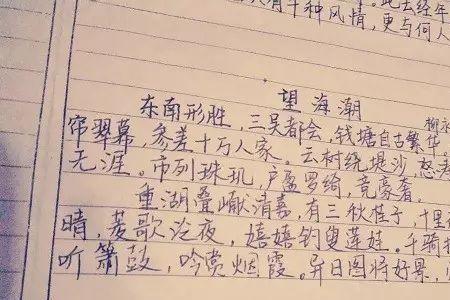 人有千种风情,更与何人
此去经年
望海潮
柳永
东南形胜,三吴都会,钱塘自古繁华。
帘翠幕,参差十万人家。云树绕堤沙,怒涛
无涯。市列珠玑,户盈罗绮,竞豪奢。
重湖叠巘清嘉,有三秋桂子,十里
晴,菱歌泛夜,嬉嬉钓叟莲娃。千骑拥
听箫鼓,吟赏烟霞。异日图将好景,